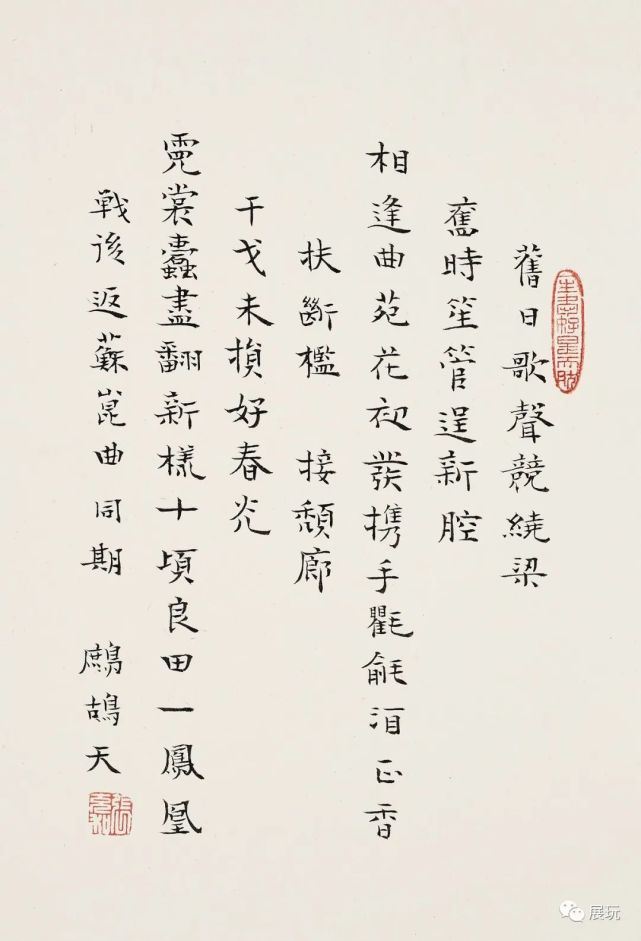 舊日歌聲競繞梁
舊時笙管逞新腔
相逢曲苑花初發携手氍毹酒正香
扶斷檻 接頹廊
干戈未損好春光
霓裳蠹盡翻新樣十頃良田一鳳凰
戰後返蘇崑曲同期 鷓鴣天
張充和
展玩